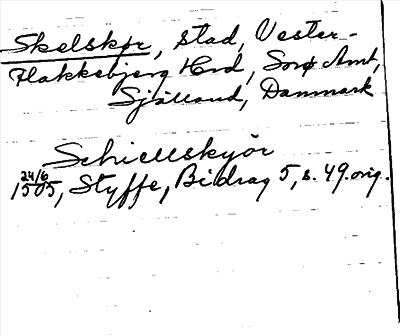 Skelskør, stad, Vester-
Flakkebjerg Hrd, Sorø Amt,
Själland, Danmark
Schiellskyör
24/6 1505, Styffe, Bidrag 5, s. 49. orig.